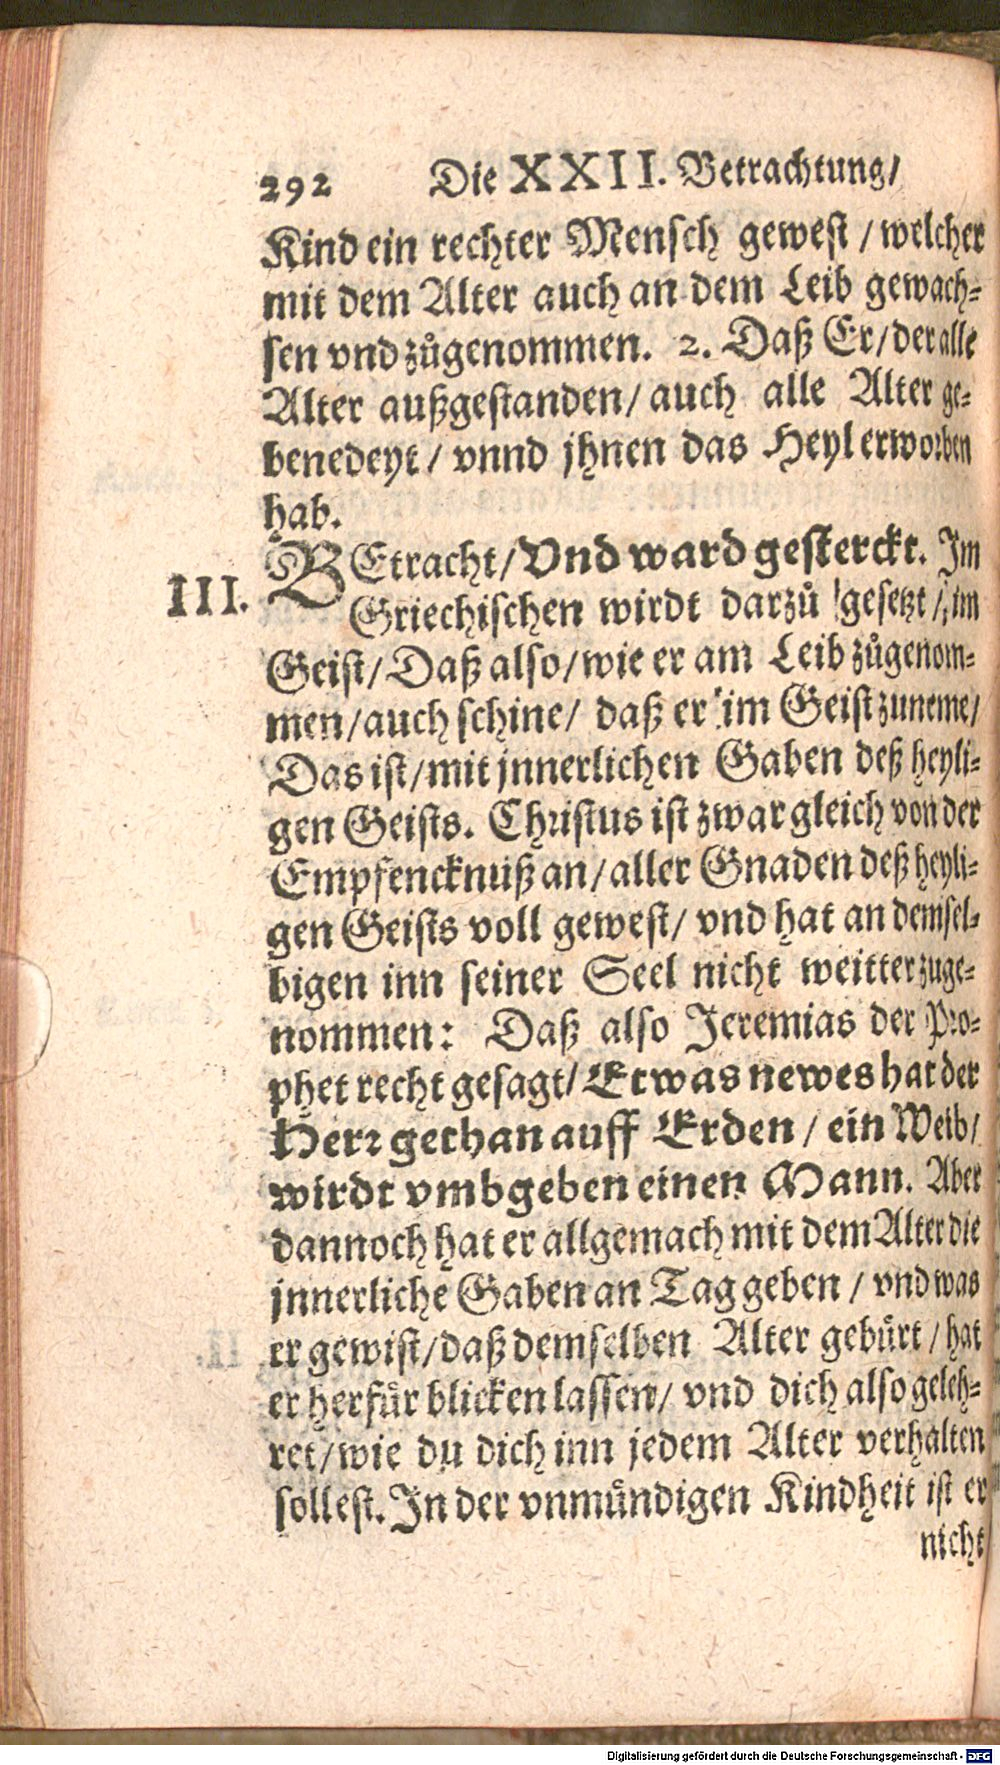 292 Die XXII. Betrachtung/
Kind ein rechter Mensch gewest / welcher
mit dem Alter auch an dem Leib gewach-
sen vnd zůgenommen. 2. Daß Er/ der alle
Alter außgestanden/ auch alle Alter ge-
benedeyt / vnnd jhnen das Heyl erworben
hab.
III. BEtracht/ Vnd ward gesterckt. Im
Griechischen wirdt darzů gesetzt /, im
Geist/ Daß also/ wie er am Leib zůgenom-
men/ auch schine/ daß er im Geist zuneme/
Das ist/ mit jnnerlichen Gaben deß heyli-
gen Geists. Christus ist zwar gleich von der
Empfencknuß an/ aller Gnaden deß heyli-
gen Geists voll gewest/ vnd hat an demsel-
bigen inn seiner Seel nicht weitter zuge-
nommen: Daß also Jeremias der Pro-
phet recht gesagt/ Etwas newes hat der
Herr gethan auff Erden / ein Weib/
wirdt vmbgeben einen Mann. Aber
dannoch hat er allgemach mit dem Alter die
jnnerliche Gaben an Tag geben / vnd was
er gewist/ daß demselben Alter gebürt / hat
er herfür blicken lassen/ vnd dich also geleh-
ret/ wie du dich inn jedem Alter verhalten
sollest. In der vnmündigen Kindheit ist er
nicht
Digitalisierung gefördert durch die Deutsche Forschungsgemeinschaft - DFG